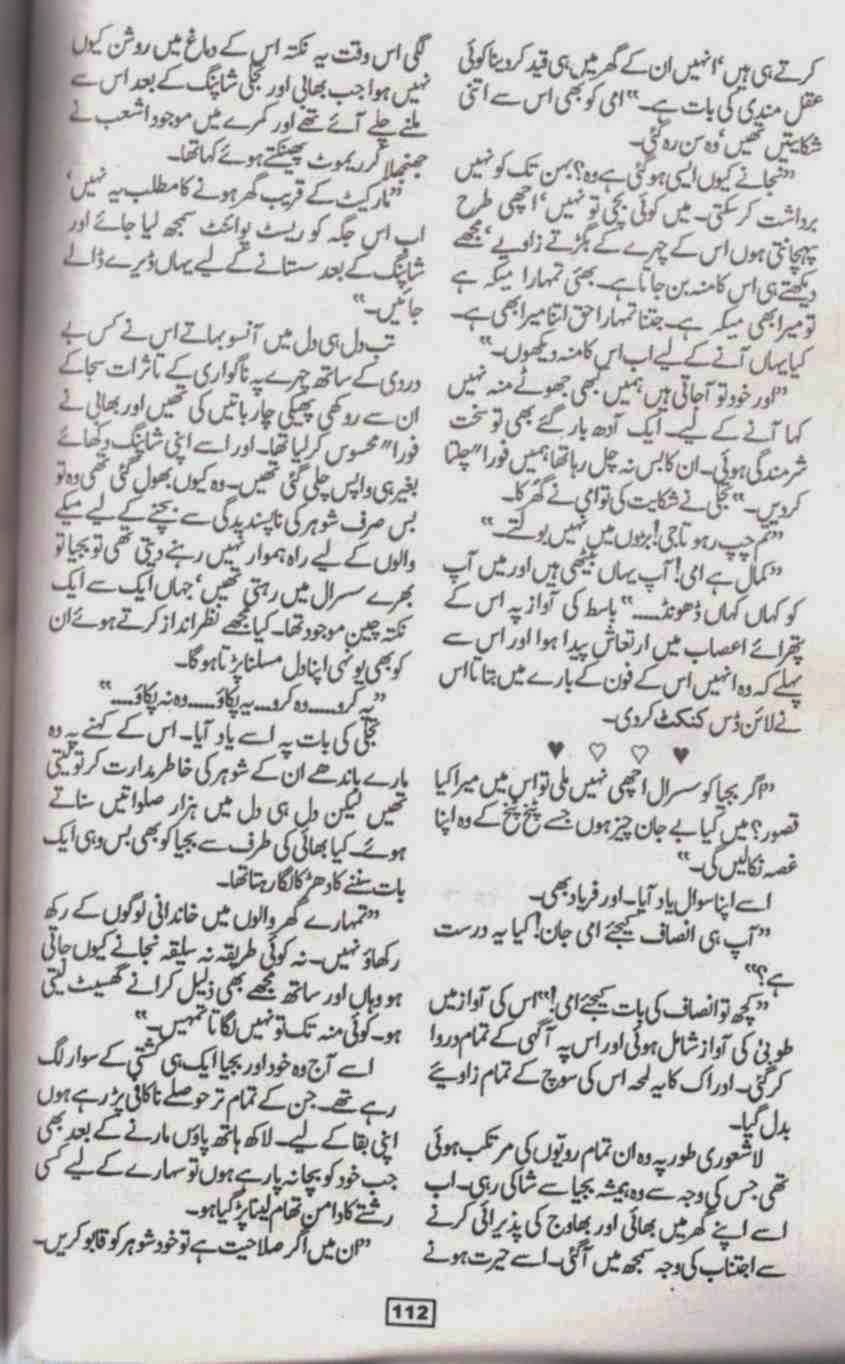 کرتے ہی ہیں‘ انہیں ان کے گھر میں ہی قید کر دینا کوئی
عقل مندی کی بات ہے۔“ امی کو بھی اس سے اتنی
شکایتیں تھیں‘ وہ سن رہ گئی۔
”نجانے کیوں ایسی ہو گئی ہے وہ؟ بہن تک کو نہیں
برداشت کر سکتی۔ میں کوئی بچی تو نہیں‘ اچھی طرح
پہچانتی ہوں اس کے چہرے کے بگڑتے زاویے‘ مجھے
دیکھتے ہی اس کا منہ بن جاتا ہے۔ بھئی تمہارا میکہ ہے
تو میرا بھی میکہ ہے۔ جتنا تمہارا حق اتنا میرا بھی ہے۔
کیا یہاں آنے کے لیے اب اس کا منہ دیکھوں۔“
”اور خود تو آ جاتی ہیں ہمیں بھی جھوٹے منہ نہیں
کہا آنے کے لیے۔ ایک آدھ بار گئے بھی تو سخت
شرمندگی ہوئی۔ ان کا بس نہ چل رہا تھا ہمیں فورا“ چلتا
کر دیں۔“ تجکی نے شکایت کی تو امی نے گھُرکا۔
”تم چپ رہو تاجی! بڑوں میں نہیں بولتے۔“
”کمال ہے امی! آپ یہاں بیٹھی ہیں اور میں آپ
کو کہاں کہاں ڈھونڈ.....“ باسط کی آواز پہ اس کے
پتھرائے اعصاب میں ارتعاش پیدا ہوا اور اس سے
پہلے کہ وہ انہیں اس کے فون کے بارے میں بتاتا اس
نے لائن ڈس کنکٹ کر دی۔
♥ ♡ ♡ ♥
”اگر بجیا کو سسرال اچھی نہیں ملی تو اس میں میرا کیا
قصور؟ میں کیا بے جان چیز ہوں جسے پٹخ پٹخ کے وہ اپنا
غصہ نکالیں گی۔“
اسے اپنا سوال یاد آیا۔ اور فریاد بھی۔
”آپ ہی انصاف کیجئے امی جان! کیا یہ درست
ہے؟“
”کچھ تو انصاف کی بات کیجئے امی!“ اس کی آواز میں
طوبیٰ کی آواز شامل ہوئی اور اس پہ آگہی کے تمام در وا
کر گئی۔ ادراک کا یہ لمحہ اس کی سوچ کے تمام زاویئے
بدل گیا۔
لاشعوری طور پہ وہ ان تمام رویوں کی مرتکب ہوئی
تھی جس کی وجہ سے وہ ہمیشہ بجیا سے شاکی رہی۔ اب
اسے اپنے گھر میں بھائی اور بھاوج کی پذیرائی کرنے
سے اجتناب کی وجہ سمجھ میں آ گئی۔ اسے حیرت ہونے
لگی اس وقت یہ نکتہ اس کے دماغ میں روشن کیوں
نہیں ہوا جب بھابی اور تجکی شاپنگ کے بعد اس سے
ملنے چلے آئے تھے اور کمرے میں موجود اشعب نے
جھنجھلا کر ریموٹ پھینکتے ہوئے کہا تھا۔
”مارکیٹ کے قریب گھر ہونے کا مطلب یہ نہیں‘
اب اس جگہ کو ریسٹ پوائنٹ سمجھ لیا جائے اور
شاپنگ کے بعد سستانے کے لیے یہاں ڈیرے ڈالے
جائیں۔“
تب دل ہی دل میں آنسو بہاتے اس نے کس بے
دردی کے ساتھ چہرے پہ ناگواری کے تاثرات سجا کے
ان سے روکھی پھیکی چار باتیں کی تھیں اور بھابی نے
فورا“ محسوس کر لیا تھا۔ اور اسے اپنی شاپنگ دکھائے
بغیر ہی واپس چلی گئی تھیں۔ وہ کیوں بھول گئی تھی وہ تو
بس صرف شوہر کی ناپسندیدگی سے بچنے کے لیے میکے
والوں کے لیے راہ ہموار نہیں رہنے دیتی تھی تو بجیا تو
بھرے سسرال میں رہتی تھیں‘ جہاں ایک سے ایک
نکتہ چین موجود تھا۔ کیا مجھے نظر انداز کرتے ہوئے ان
کو بھی یونہی اپنا دل مسلنا پڑتا ہو گا۔
”یہ کرو..... وہ کرو... یہ پکاؤ..... وہ نہ پکاؤ....“
تجکی کی بات پہ اسے یاد آیا۔ اس کے کہنے پہ وہ
مارے باندھے ان کے شوہر کی خاطر مدارت کر تو لیتی
تھیں لیکن دل ہی دل میں ہزار صلواتیں سناتے
ہوئے۔ کیا بھائی کی طرف سے بجیا کو بھی بس وہی ایک
بات سننے کا دھڑکا لگا رہتا تھا۔
”تمہارے گھر والوں میں خاندانی لوگوں کے رکھ
رکھاؤ نہیں۔ نہ کوئی طریقہ نہ سلیقہ نجانے کیوں جاتی
ہو وہاں اور ساتھ مجھے بھی ذلیل کرانے گھسیٹ لیتی
ہو۔ کوئی منہ تک تو نہیں لگاتا تمہیں۔“
اسے آج وہ خود اور بجیا ایک ہی کشتی کے سوار لگ
رہے تھے۔ جن کے تمام تر حوصلے ناکافی پڑ رہے ہوں
اپنی بقا کے لیے۔ لاکھ ہاتھ پاؤں مارنے کے بعد بھی
جب خود کو بچا نہ پا رہے ہوں تو سہارے کے لیے کسی
رشتے کا دامن تھام لینا پڑ گیا ہو۔
”ان میں اگر صلاحیت ہے تو خود شوہر کو قابو کریں۔
112